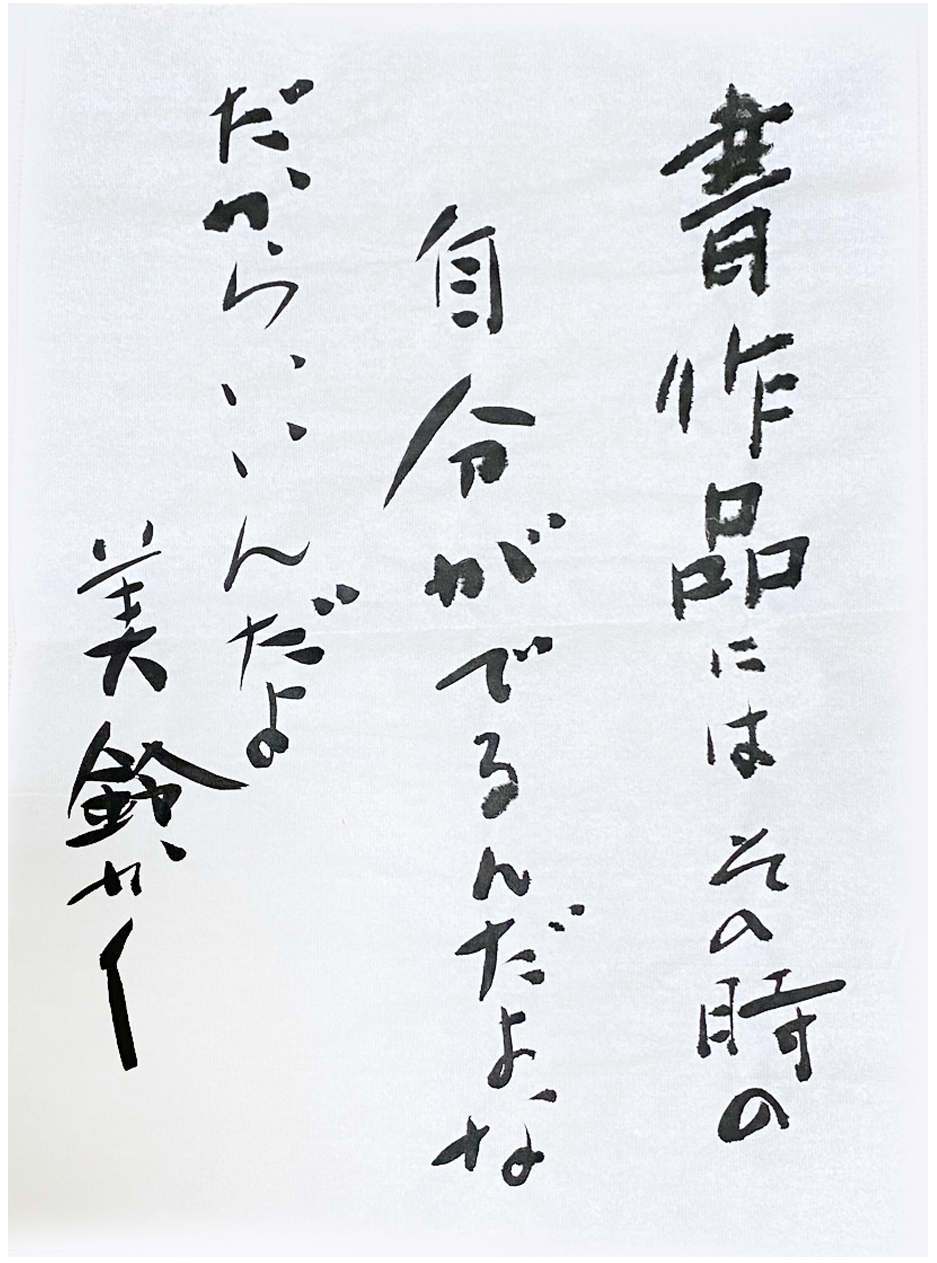 書作品にはその時の
自分がでるんだよな
だからいいんだよ
美鈴かく